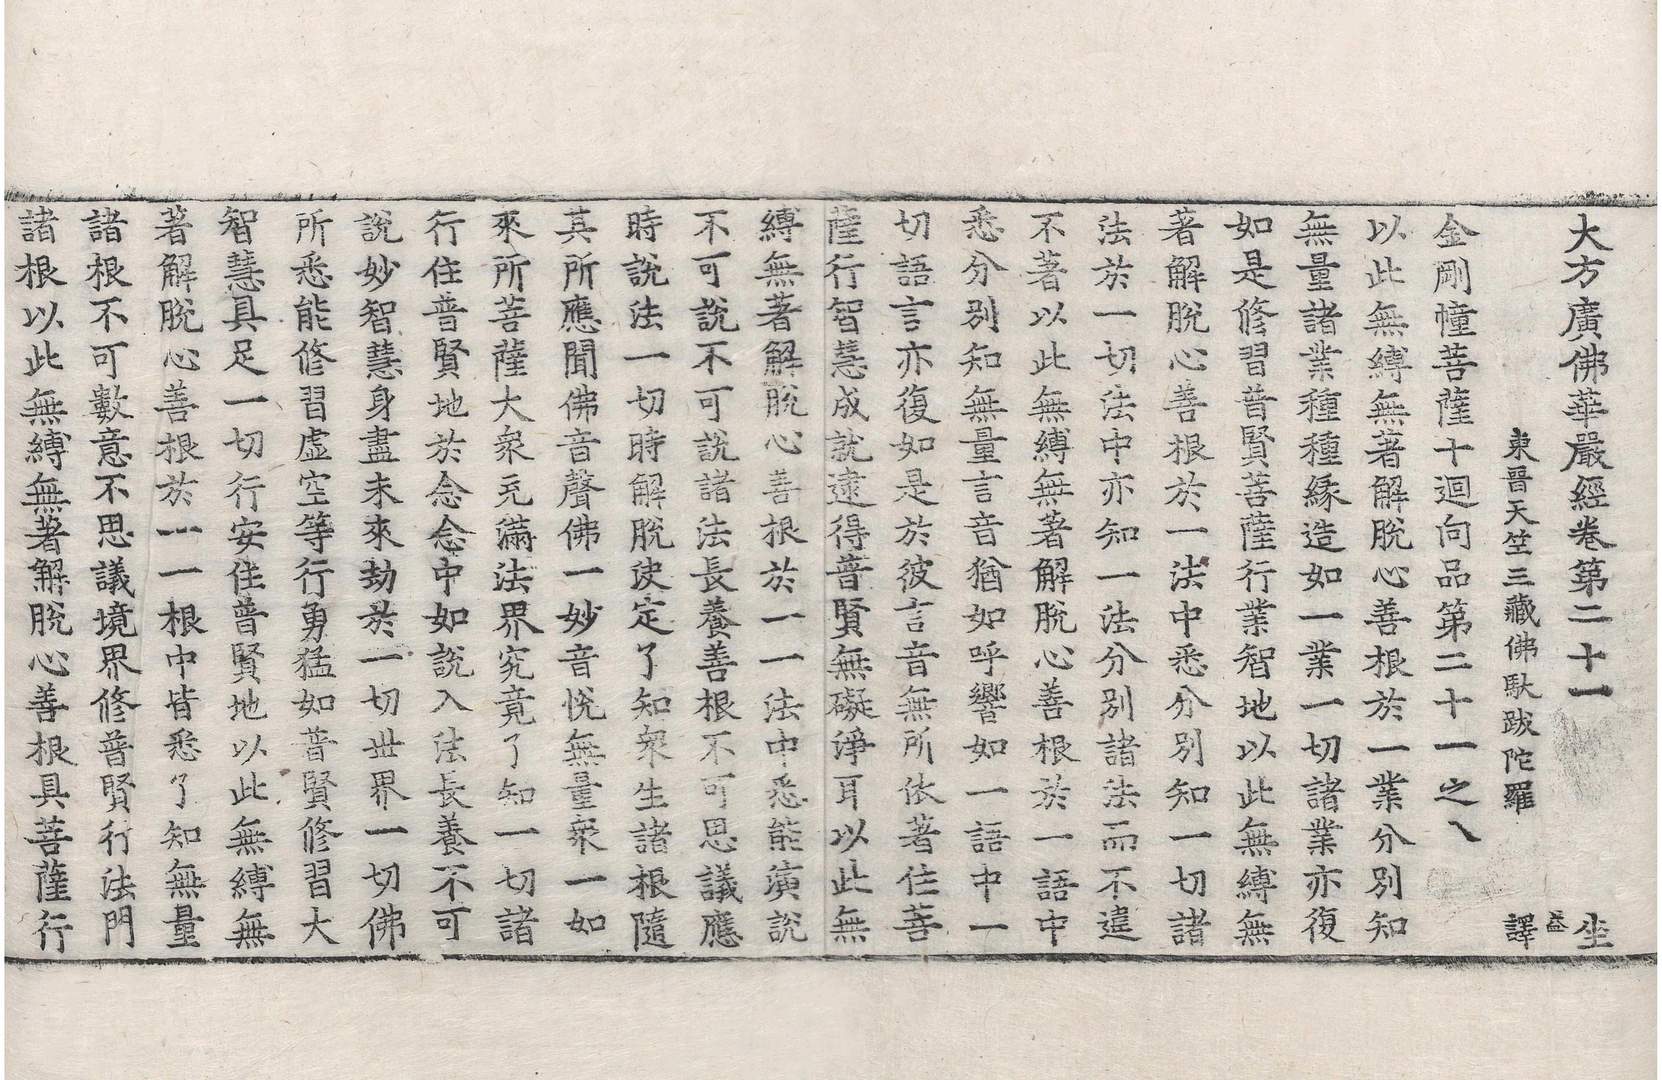 大方廣佛華嚴經卷第二十一 坐
東晉天竺三藏佛馱跋陀羅 譯
金剛幢菩薩十迴向品第二十一之八
以此無縛無著解脫心善根於一業分別知
無量諸業種種緣造如一業一切諸業亦復
如是修習普賢菩薩行業智地以此無縛無
著解脫心善根於一法中悉分別知一切諸
法於一切法中亦知一法分別諸法而不違
不著以此無縛無著解脫心善根於一語中
悉分別知無量言音猶如呼響如一語中一
切語言亦復如是於彼言音無所依著住菩
薩行智慧成就逮得普賢無礙淨耳以此無
縛無著解脫心善根於一一法中悉能演說
不可說不可說諸法長養善根不可思議應
時說法一切時解脫決定了知衆生諸根隨
其所應聞佛音聲佛一妙音悅無量衆一如
來所菩薩大衆充滿法界究竟了知一切諸
行住普賢地於念念中如說入法長養不可
說妙智慧身盡未來劫於一切世界一切佛
所悉能修習虛空等行勇猛如普賢修習大
智慧具足一切行安住普賢地以此無縛無
著解脫心善根於一一根中皆悉了知無量
諸根不可數意不思議境界修普賢行法門
諸根以此無縛無著解脫心善根具菩薩行